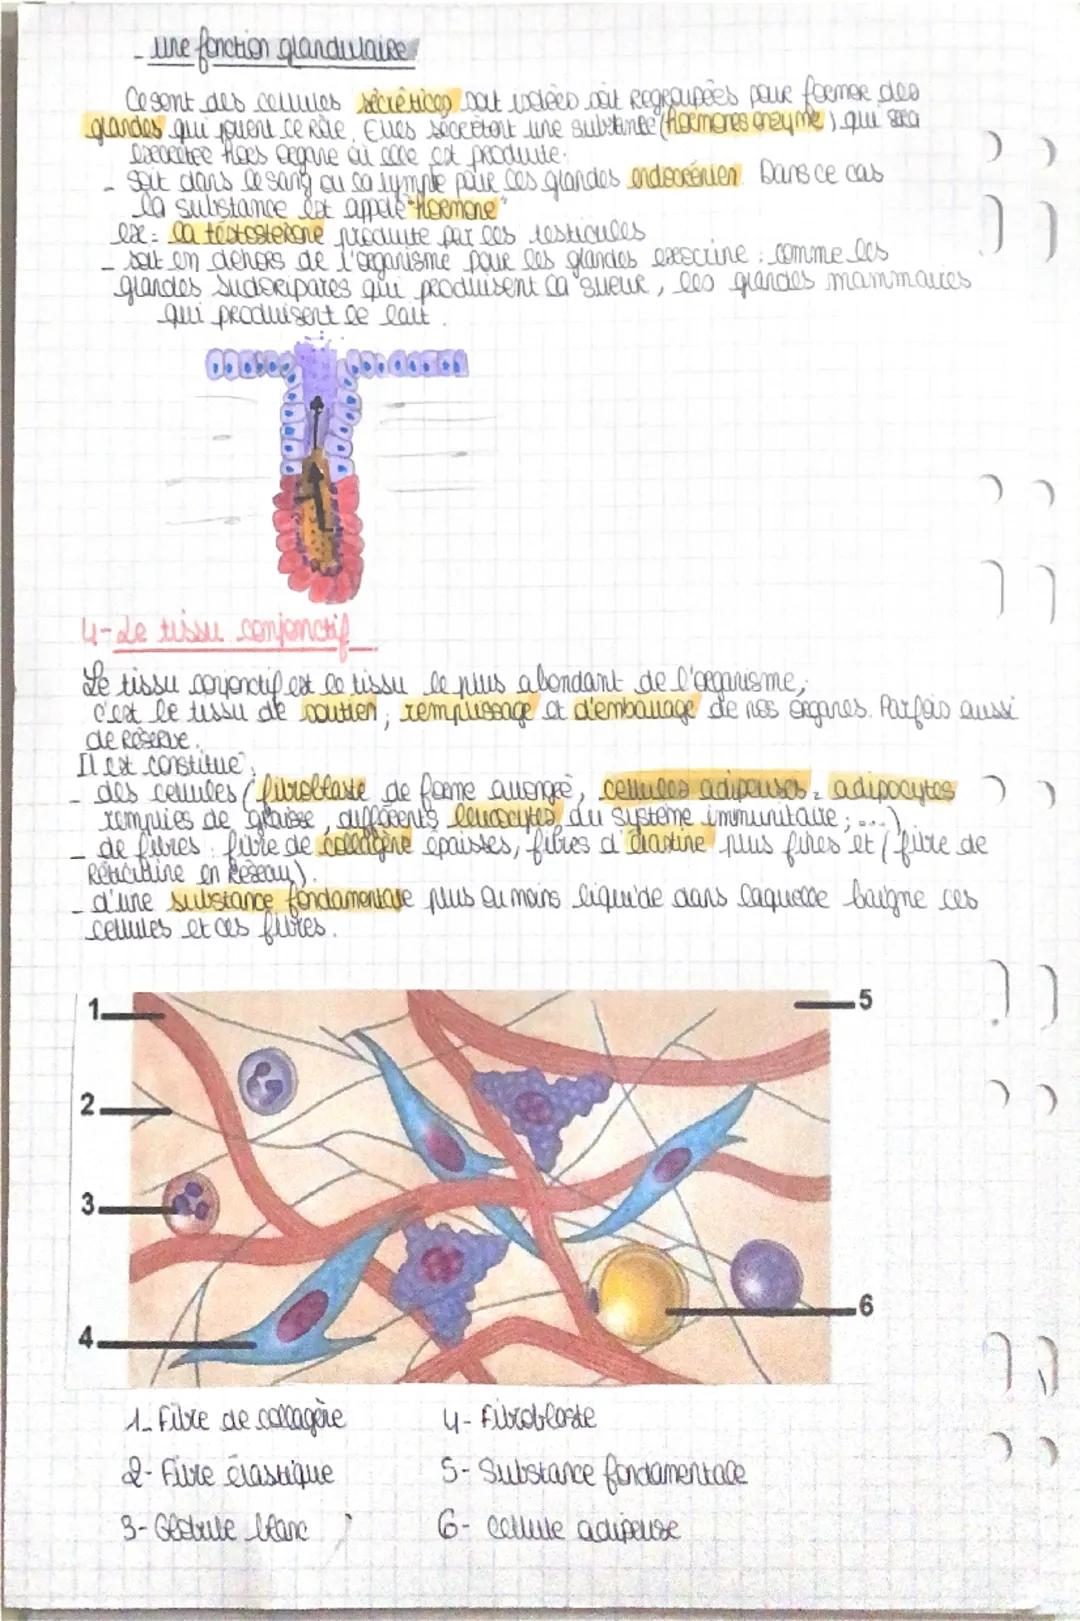 - une fonction glandulaire
Ce sont des cellules sécrétices soit isolées soit regroupées pour former des
glandes qui jouent ce rôle. Elles sécrètent une substance (hormones enzyme) qui sera
excrétée hors organe où elle est produite.
- soit dans le sang ou la lymple pour les glandes endocrénien. Dans ce cas
la substance est appelé "Hormone"
ex: la testosterone produite par les testicules
- soit en dehors de l'organisme pour les glandes exocrine : comme les
glandes sudoripares qui produisent la sueur, les glandes mammaires
qui produisent le lait.
4- Le tissu conjonctif
Le tissu conjonctif est le tissu le plus abondant de l'organisme,
c'est le tissu de soutien, remplissage et d'emballage de nos organes. Parfois aussi
de réserve.
Il est constitué,
- des cellules (fibroblaste de forme allongé, cellules adipeuses = adipocytes
remplies de graisse, différents leucocytes du système immunitaire ; ...)
- de fibres : fibre de collagène épaisses, fibres d'élastine plus fines et (fibre de
Réticuline en Réseau).
- d'une substance fondamentale plus ou moins liquide dans laquelle baigne ces
cellules et ces fibres.
1
5
2
3
6
4
1- Fibre de collagène 4- Fibroblaste
2- Fibre élastique 5- Substance fondamentale
3- Globule blanc 6- cellule adipeuse